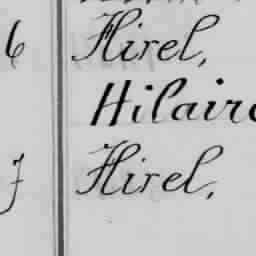 6 Hirel,
Hilaire
7 Hirel,